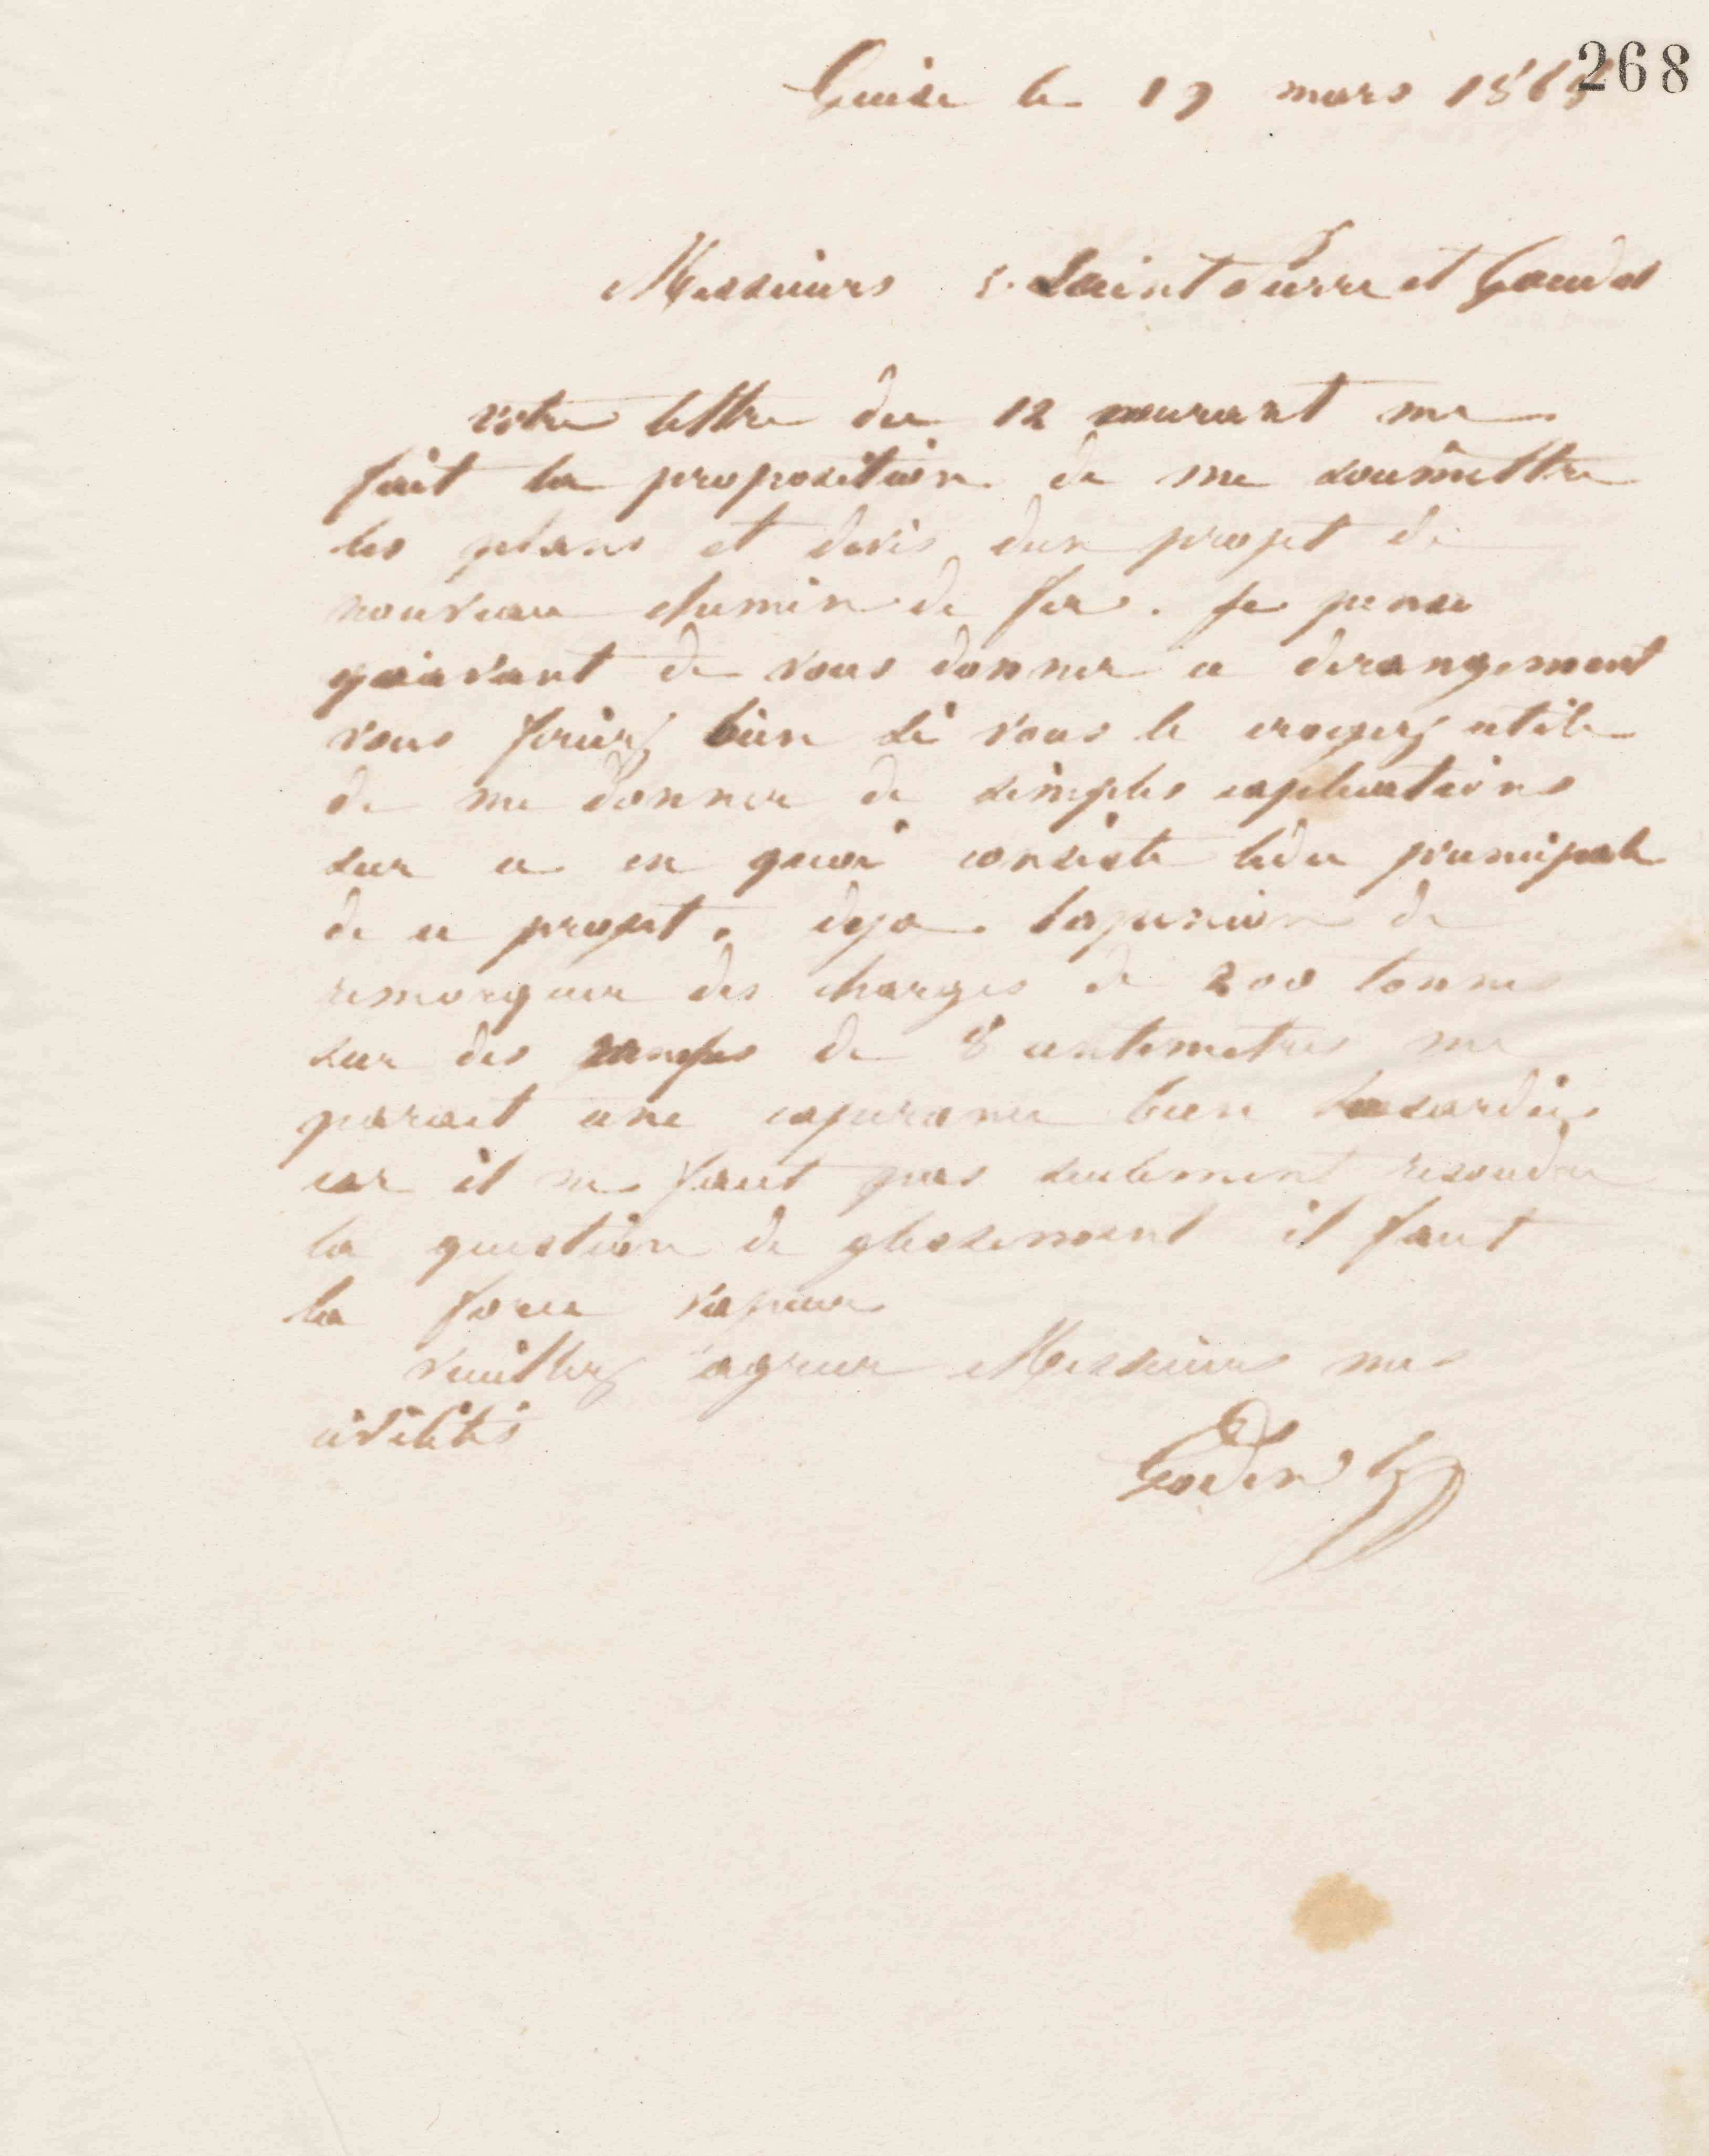 268
Guise le 19 mars 186
Messieurs Saint Pierre et Goudet
votre lettre du 12 courant me
fait la proposition de me soumettre
les plans et devis dun projet de
nouveau chemin de fer. Je pense
qu'avant de vous donner ce derangement
vous feriez bien si vous le croyez utile
de me donner de simples explications
sur ce en quoi consiste lidée principale
de ce projet. deja
remorquer des charges de 200 tonnes
sur des rampes de 8 centimetres me
parait une esperance bien hasardée
car il ne faut pas seulement resoudre
la question de glissement il faut
la force vapeur
veuillez agreer Messieurs mes
civilités
Godin